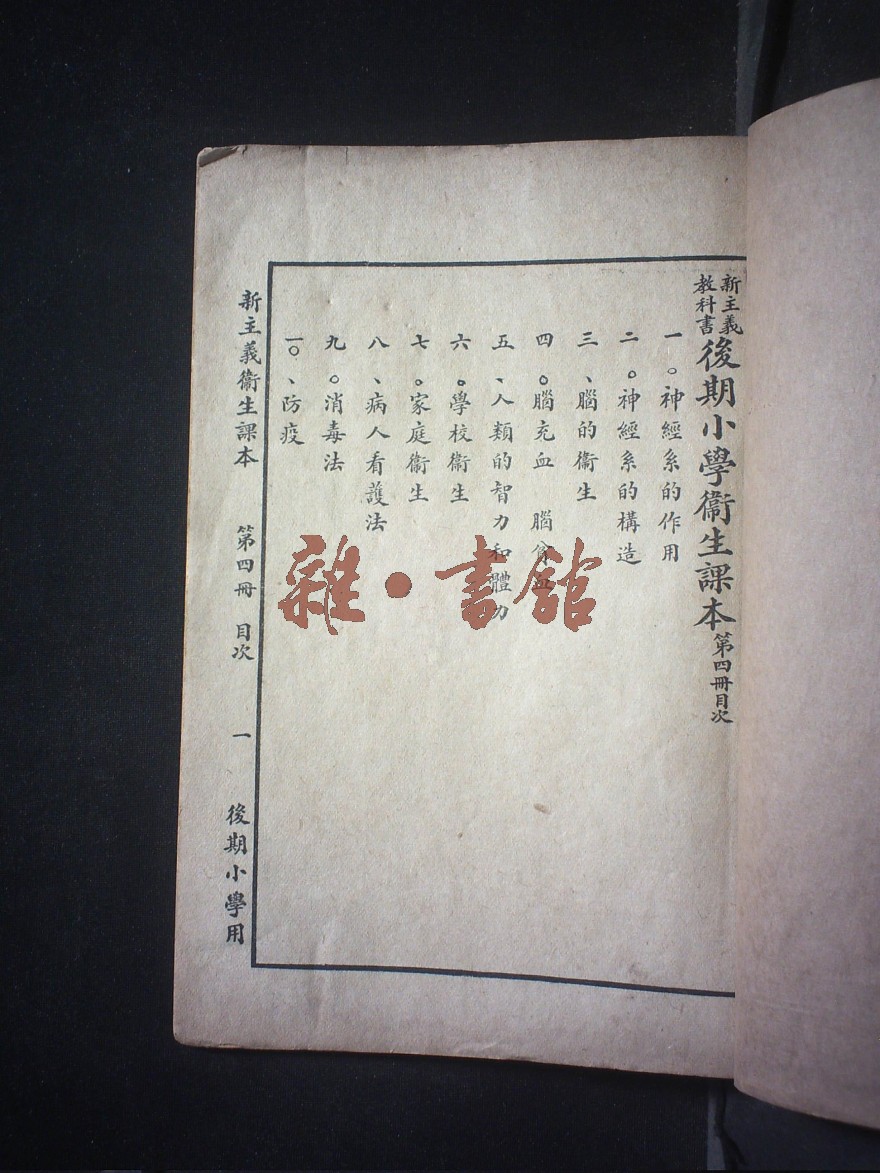 新主義
教科書
後期小學衞生課本第四冊目次
一。神經系的作用
二。神經系的構造
三、腦的衞生
四。腦充血　腦貧血
五、人類的智力和體力
六。學校衞生
七。家庭衞生
八、病人看護法
九。消毒法
一〇、防疫
新主義衞生課本　第四冊　目次　一　後期小學用
雜·書館